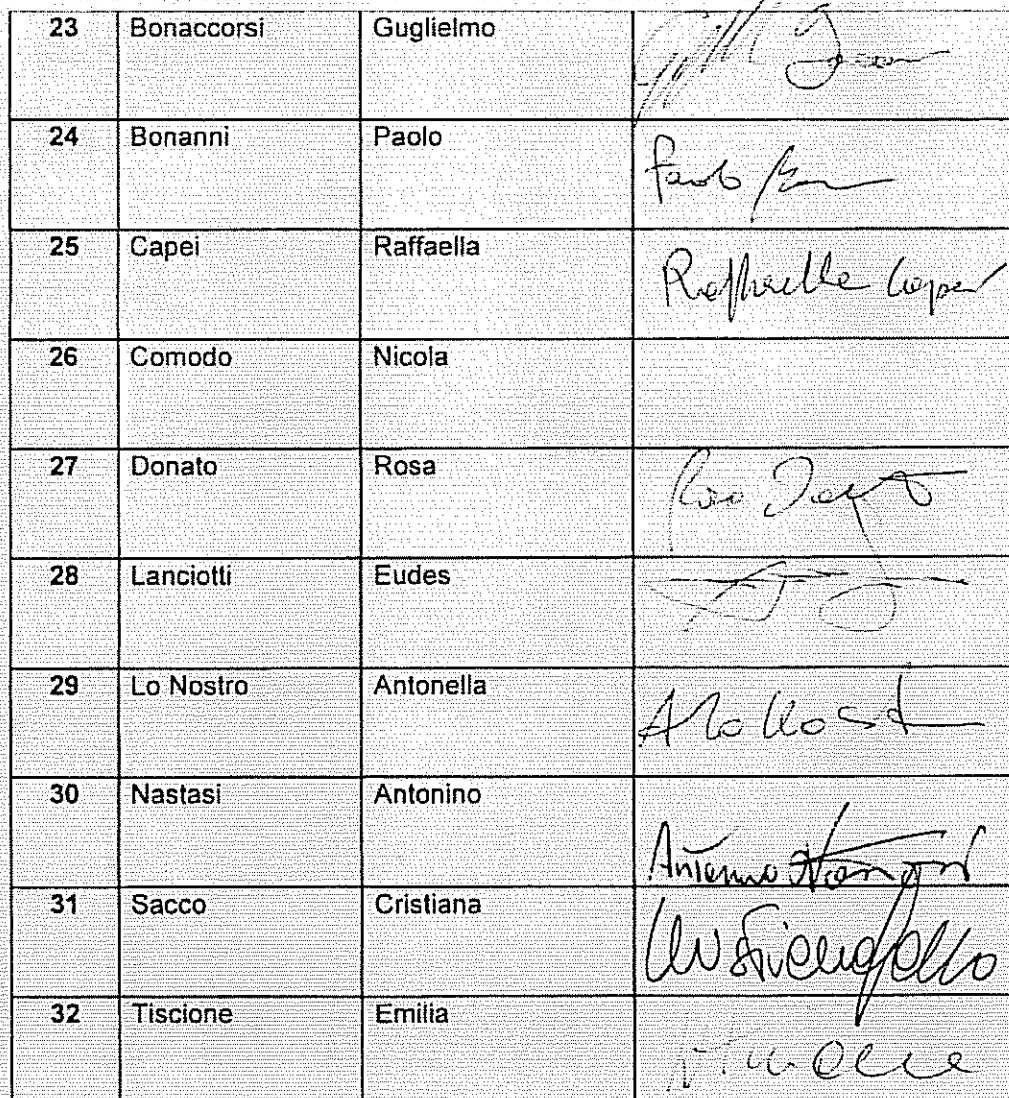 23 Bonaccorsi Guglielmo
24 Bonanni Paolo Paolo
25 Capei Raffaella Raffaella Capei
26 Comodo Nicola
27 Donato Rosa Rosa Donato
28 Lanciotti Eudes
29 Lo Nostro Antonella
30 Nastasi Antonino Antonino Nastasi
31 Sacco Cristiana Cristiana Sacco
32 Tiscione Emilia